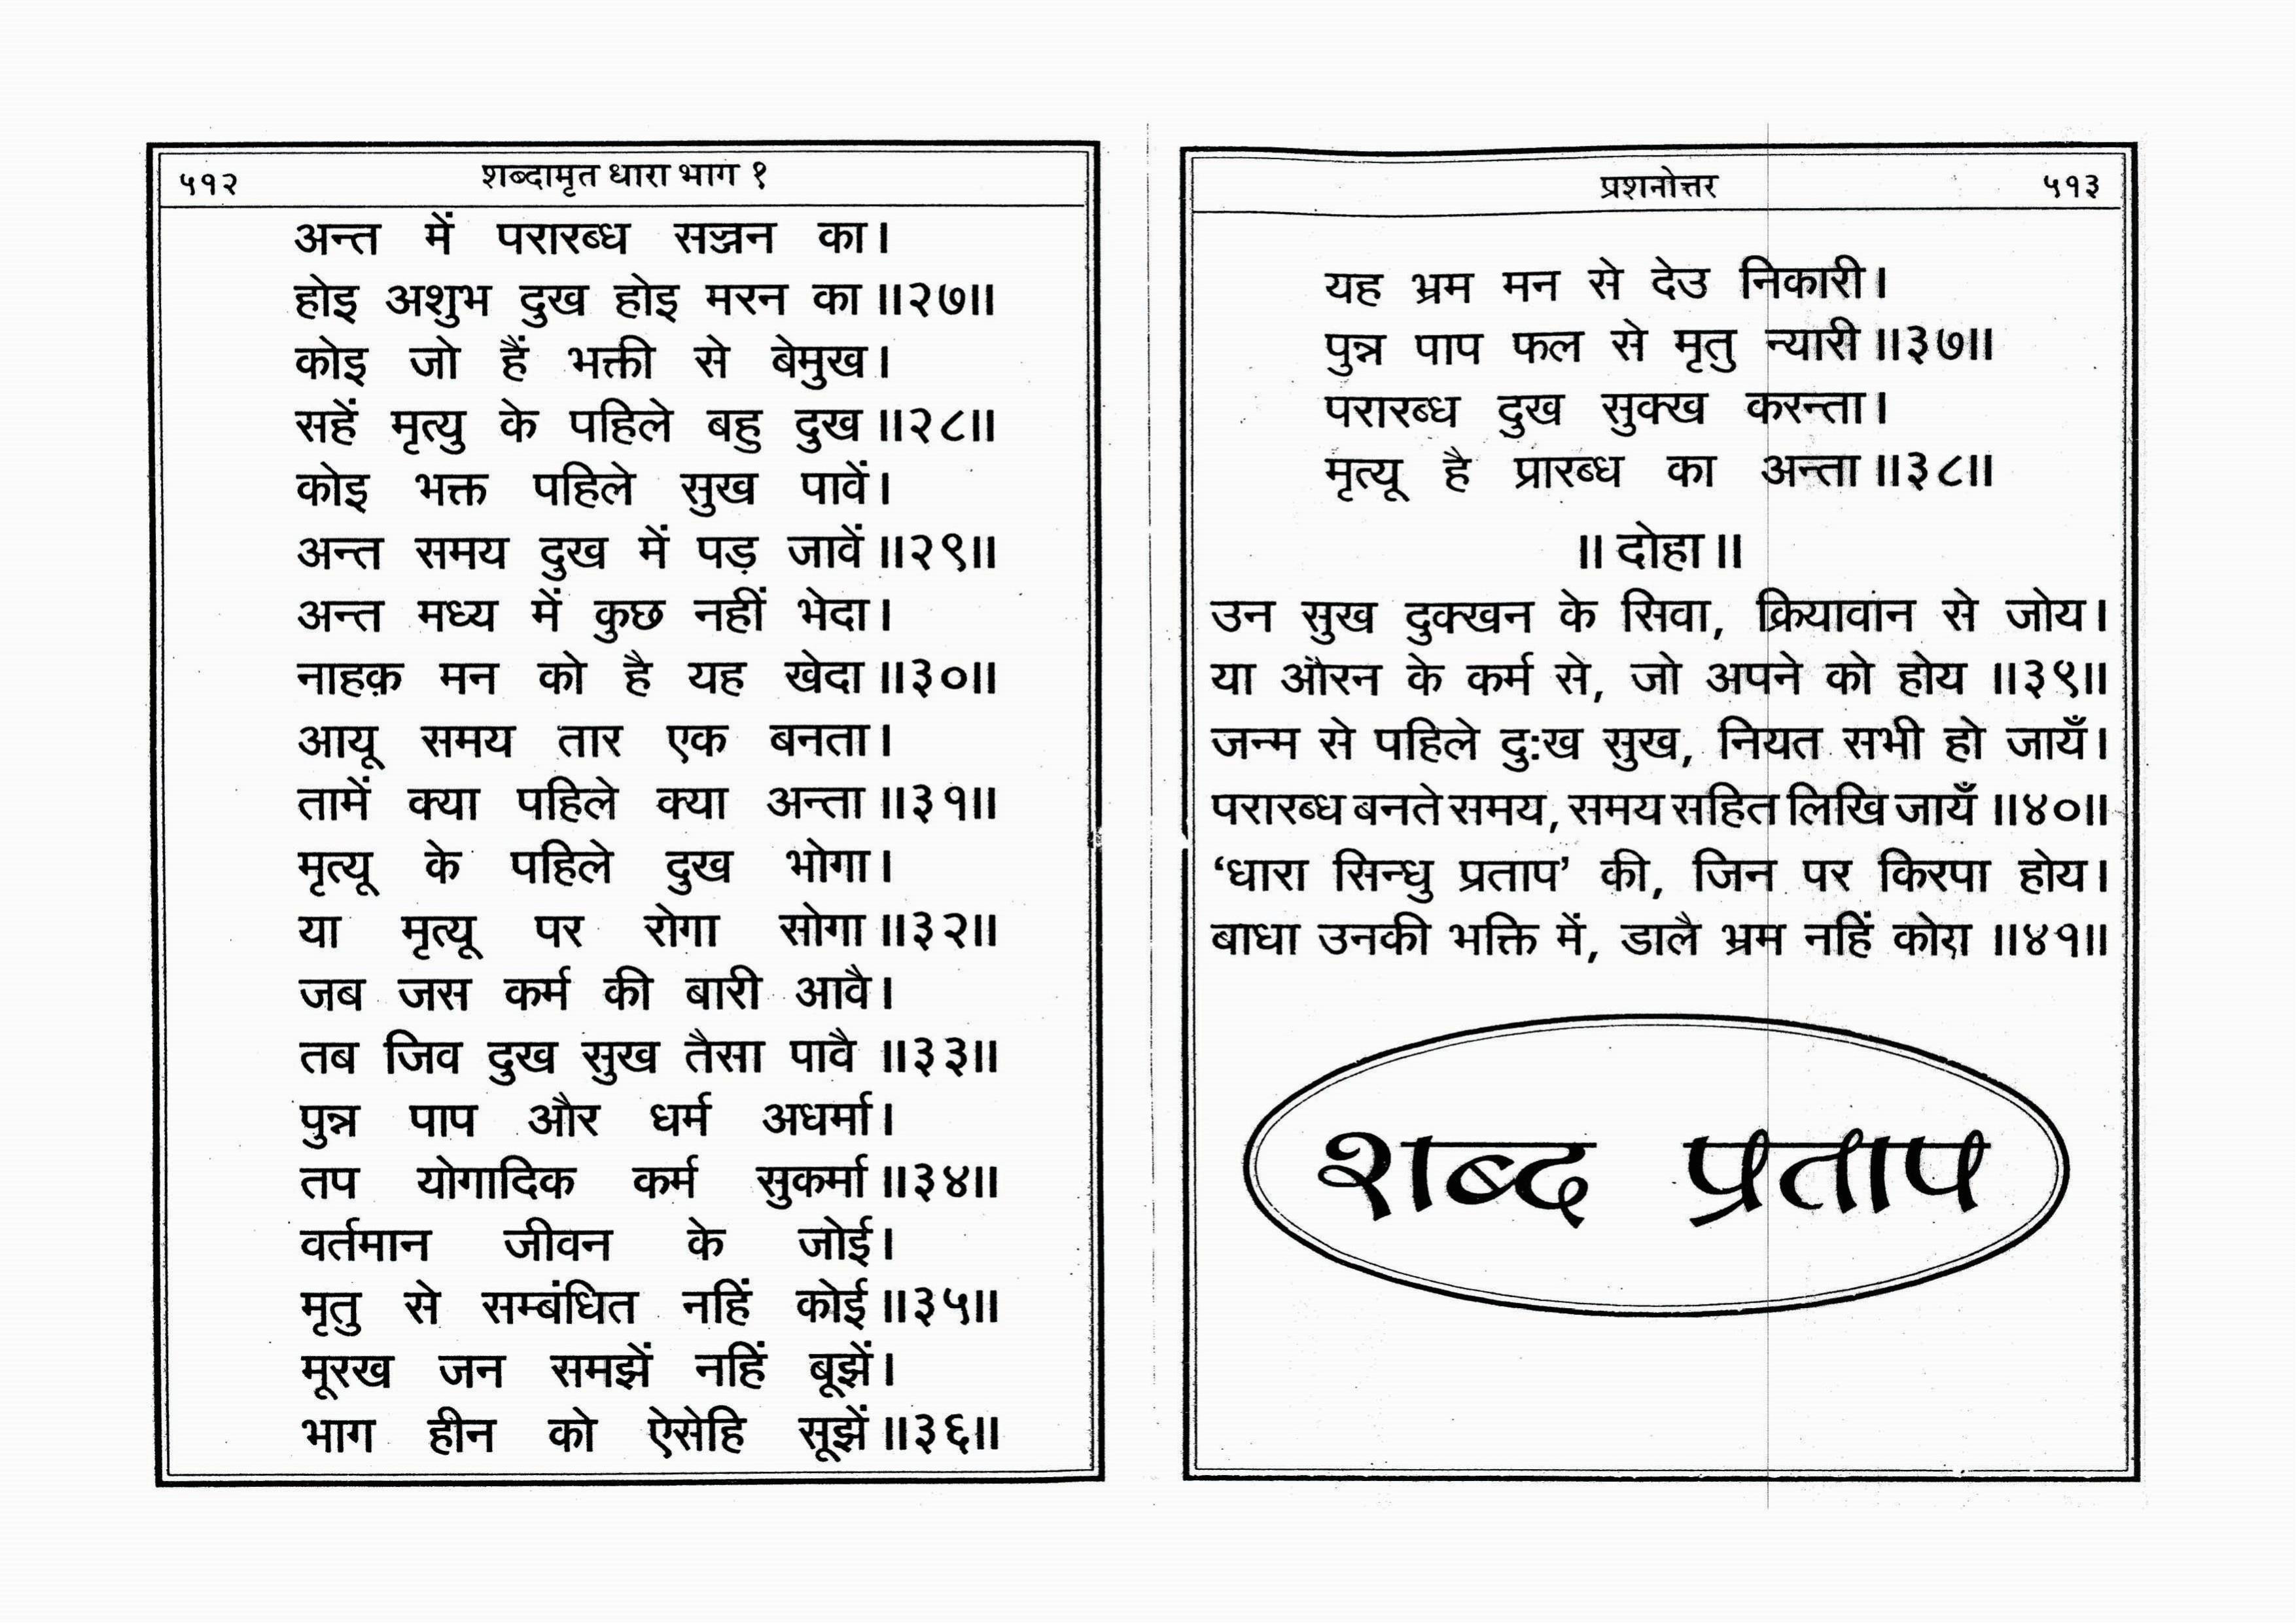 ५१२ शब्दामृत धारा भाग १
अन्त में परारब्ध सज्जन का।
होइ अशुभ दुख होइ मरन का॥२७॥
कोइ जो हैं भक्ती से बेमुख।
सहें मृत्यु के पहिले बहु दुख॥२८॥
कोइ भक्त पहिले सुख पावें।
अन्त समय दुख में पड़ जावें॥२९॥
अन्त मध्य में कुछ नहीं भेदा।
नाहक़ मन को है यह खेदा॥३०॥
आयू समय तार एक बनता।
तामें क्या पहिले क्या अन्ता॥३१॥
मृत्यू के पहिले दुख भोगा।
या मृत्यू पर रोगा सोगा॥३२॥
जब जस कर्म की बारी आवै।
तब जिव दुख सुख तैसा पावै॥३३॥
पुन्न पाप और धर्म अधर्मा।
तप योगादिक कर्म सुकर्मा॥३४॥
वर्तमान जीवन के जोई।
मृतु से सम्बंधित नहिं कोई॥३५॥
मूरख जन समझें नहिं बूझें।
भाग हीन को ऐसेहि सूझें॥३६॥
प्रशनोत्तर ५१३
यह भ्रम मन से देउ निकारी।
पुन्न पाप फल से मृतु न्यारी॥३७॥
परारब्ध दुख सुक्ख करन्ता।
मृत्यू है प्रारब्ध का अन्ता॥३८॥
॥ दोहा ॥
उन सुख दुक्खन के सिवा, क्रियावान से जोय।
या औरन के कर्म से, जो अपने को होय ॥३९॥
जन्म से पहिले दु:ख सुख, नियत सभी हो जायँ।
परारब्ध बनते समय, समय सहित लिखि जायँ ॥४०॥
‘धारा सिन्धु प्रताप’ की, जिन पर किरपा होय।
बाधा उनकी भक्ति में, डालै भ्रम नहिं ॥४१॥
शब्द प्रताप